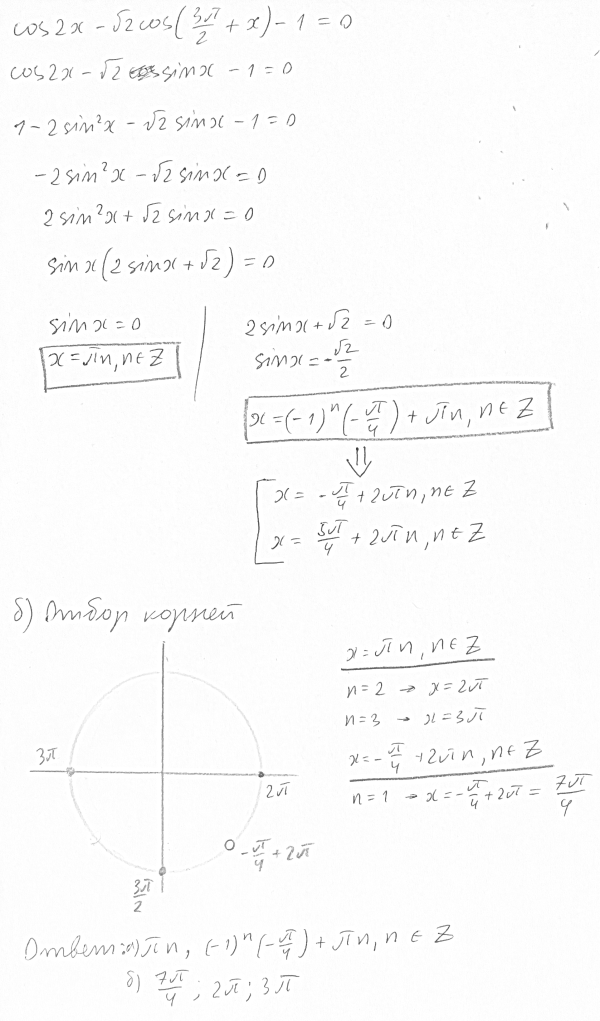 cos2x - √2cos(3π/2 + x) - 1 = 0
cos2x - √2 sinx - 1 = 0
1 - 2sin²x - √2 sinx - 1 = 0
-2sin²x - √2 sinx = 0
2sin²x + √2 sinx = 0
sinx(2sinx + √2) = 0
sinx = 0
x = πn, n∈Z
2sinx + √2 = 0
sinx = -√2/2
x = (-1)ⁿ(-π/4) + πn, n∈Z
⇓
x = -π/4 + 2πn, n∈Z
x = 5π/4 + 2πn, n∈Z
б) Отбор корней
3π
2π
-π/4 + 2π
3π/2
x = πn, n∈Z
n=2 → x=2π
n=3 → x=3π
x = -π/4 + 2πn, n∈Z
n=1 → x = -π/4 + 2π = 7π/4
Ответ: а) πn, (-1)ⁿ(-π/4) + πn, n∈Z
б) 7π/4; 2π; 3π